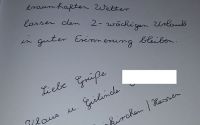 traumhaften Wetter
lassen den 2-wöchigen Urlaub
in guter Erinnerung bleiben.
Liebe Grüße
Klaus u. Gerlinde
/ Hessen